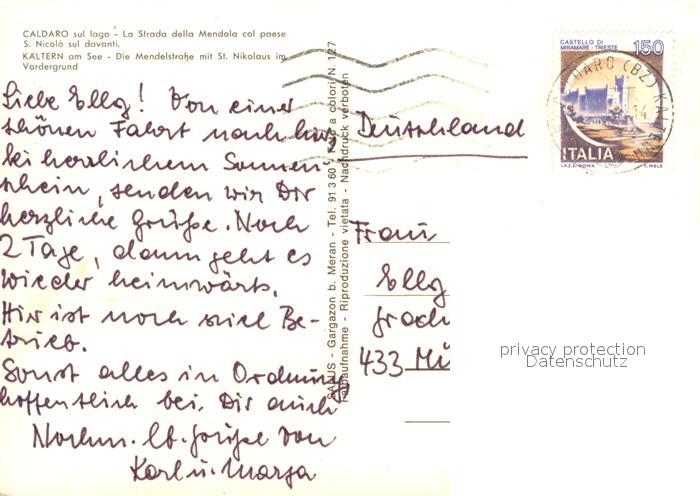 CALDARO sul lago - La Strada della Mendola col paese
S. Nicolò sul davanti.
KALTERN am See - Die Mendelstraße mit St. Nikolaus im
Vordergrund
Liebe Elly! Von einer
schönen Fahrt nach hier
bei herrlichem Sonnen-
schein, senden wir Dir
herzliche Grüße. Noch
2 Tage, dann geht es
wieder heimwärts.
Hier ist noch viel Be-
trieb.
Sonst alles in Ordnung
hoffentlich bei Dir auch
Nochm. lb. Grüße von
Karl u. Marga
SANUS - Gargazon b. Meran - Tel. 91 3 60 - Foto a colori N. 127
Farbaufnahme - Riproduzione vietata - Nachdruck verboten
CASTELLO DI
MIRAMARE - TRIESTE
150
ITALIA
I.P.Z.S. ROMA
T. MELE
(BZ) KALTERN
14
Deutschland
Frau
Elly
433 Mü
privacy protection
Datenschutz